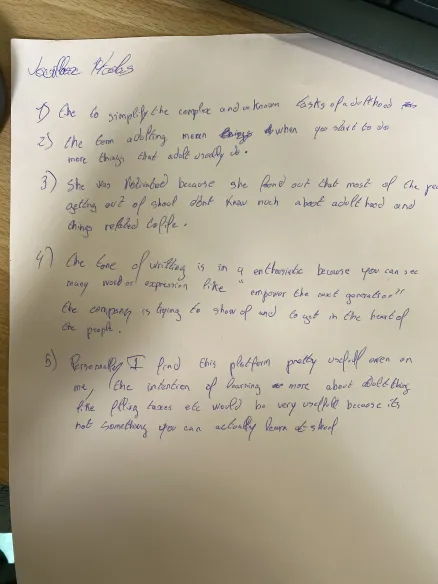 1) The to simplify the complex and unknown tasks of adulthood
2) the term adulting mean when you start to do
more things that adult usually do.
3) She was Motivated because she found out that most of the
getting out of shool dont know much about adulthood and
things related to life.
4) The tone of writting is in a enthusiastic because you can see
many word or expression like "empower the next generation"
the company is trying to show of and to get in the heart of
the people.
5) Personally I find this platform pretty usefull even on
me, the intention of learning more about adult thing
like filling taxes etc would be very usefull because its
not something you can actually learn at shool